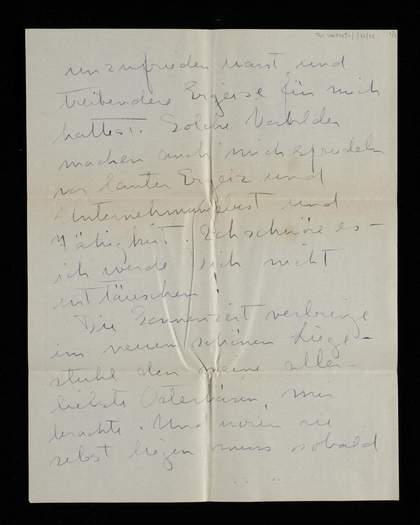 unzufrieden warst und
treibendere Ergeize für mich
hattest. Solche Vorbilder
machen auch mich sprudeln
vor lauter Ergeiz und
Unternehmungslust und
Zähigkeit. Ich schwöre es –
ich werde dich nicht
enttäuschen!
Die Sonnenzeit verbringe
im neuen schönen Liege-
stuhl den meine aller-
liebste Osterhäsin mir
brachte. Und worin sie
selbst liegen muss sobald